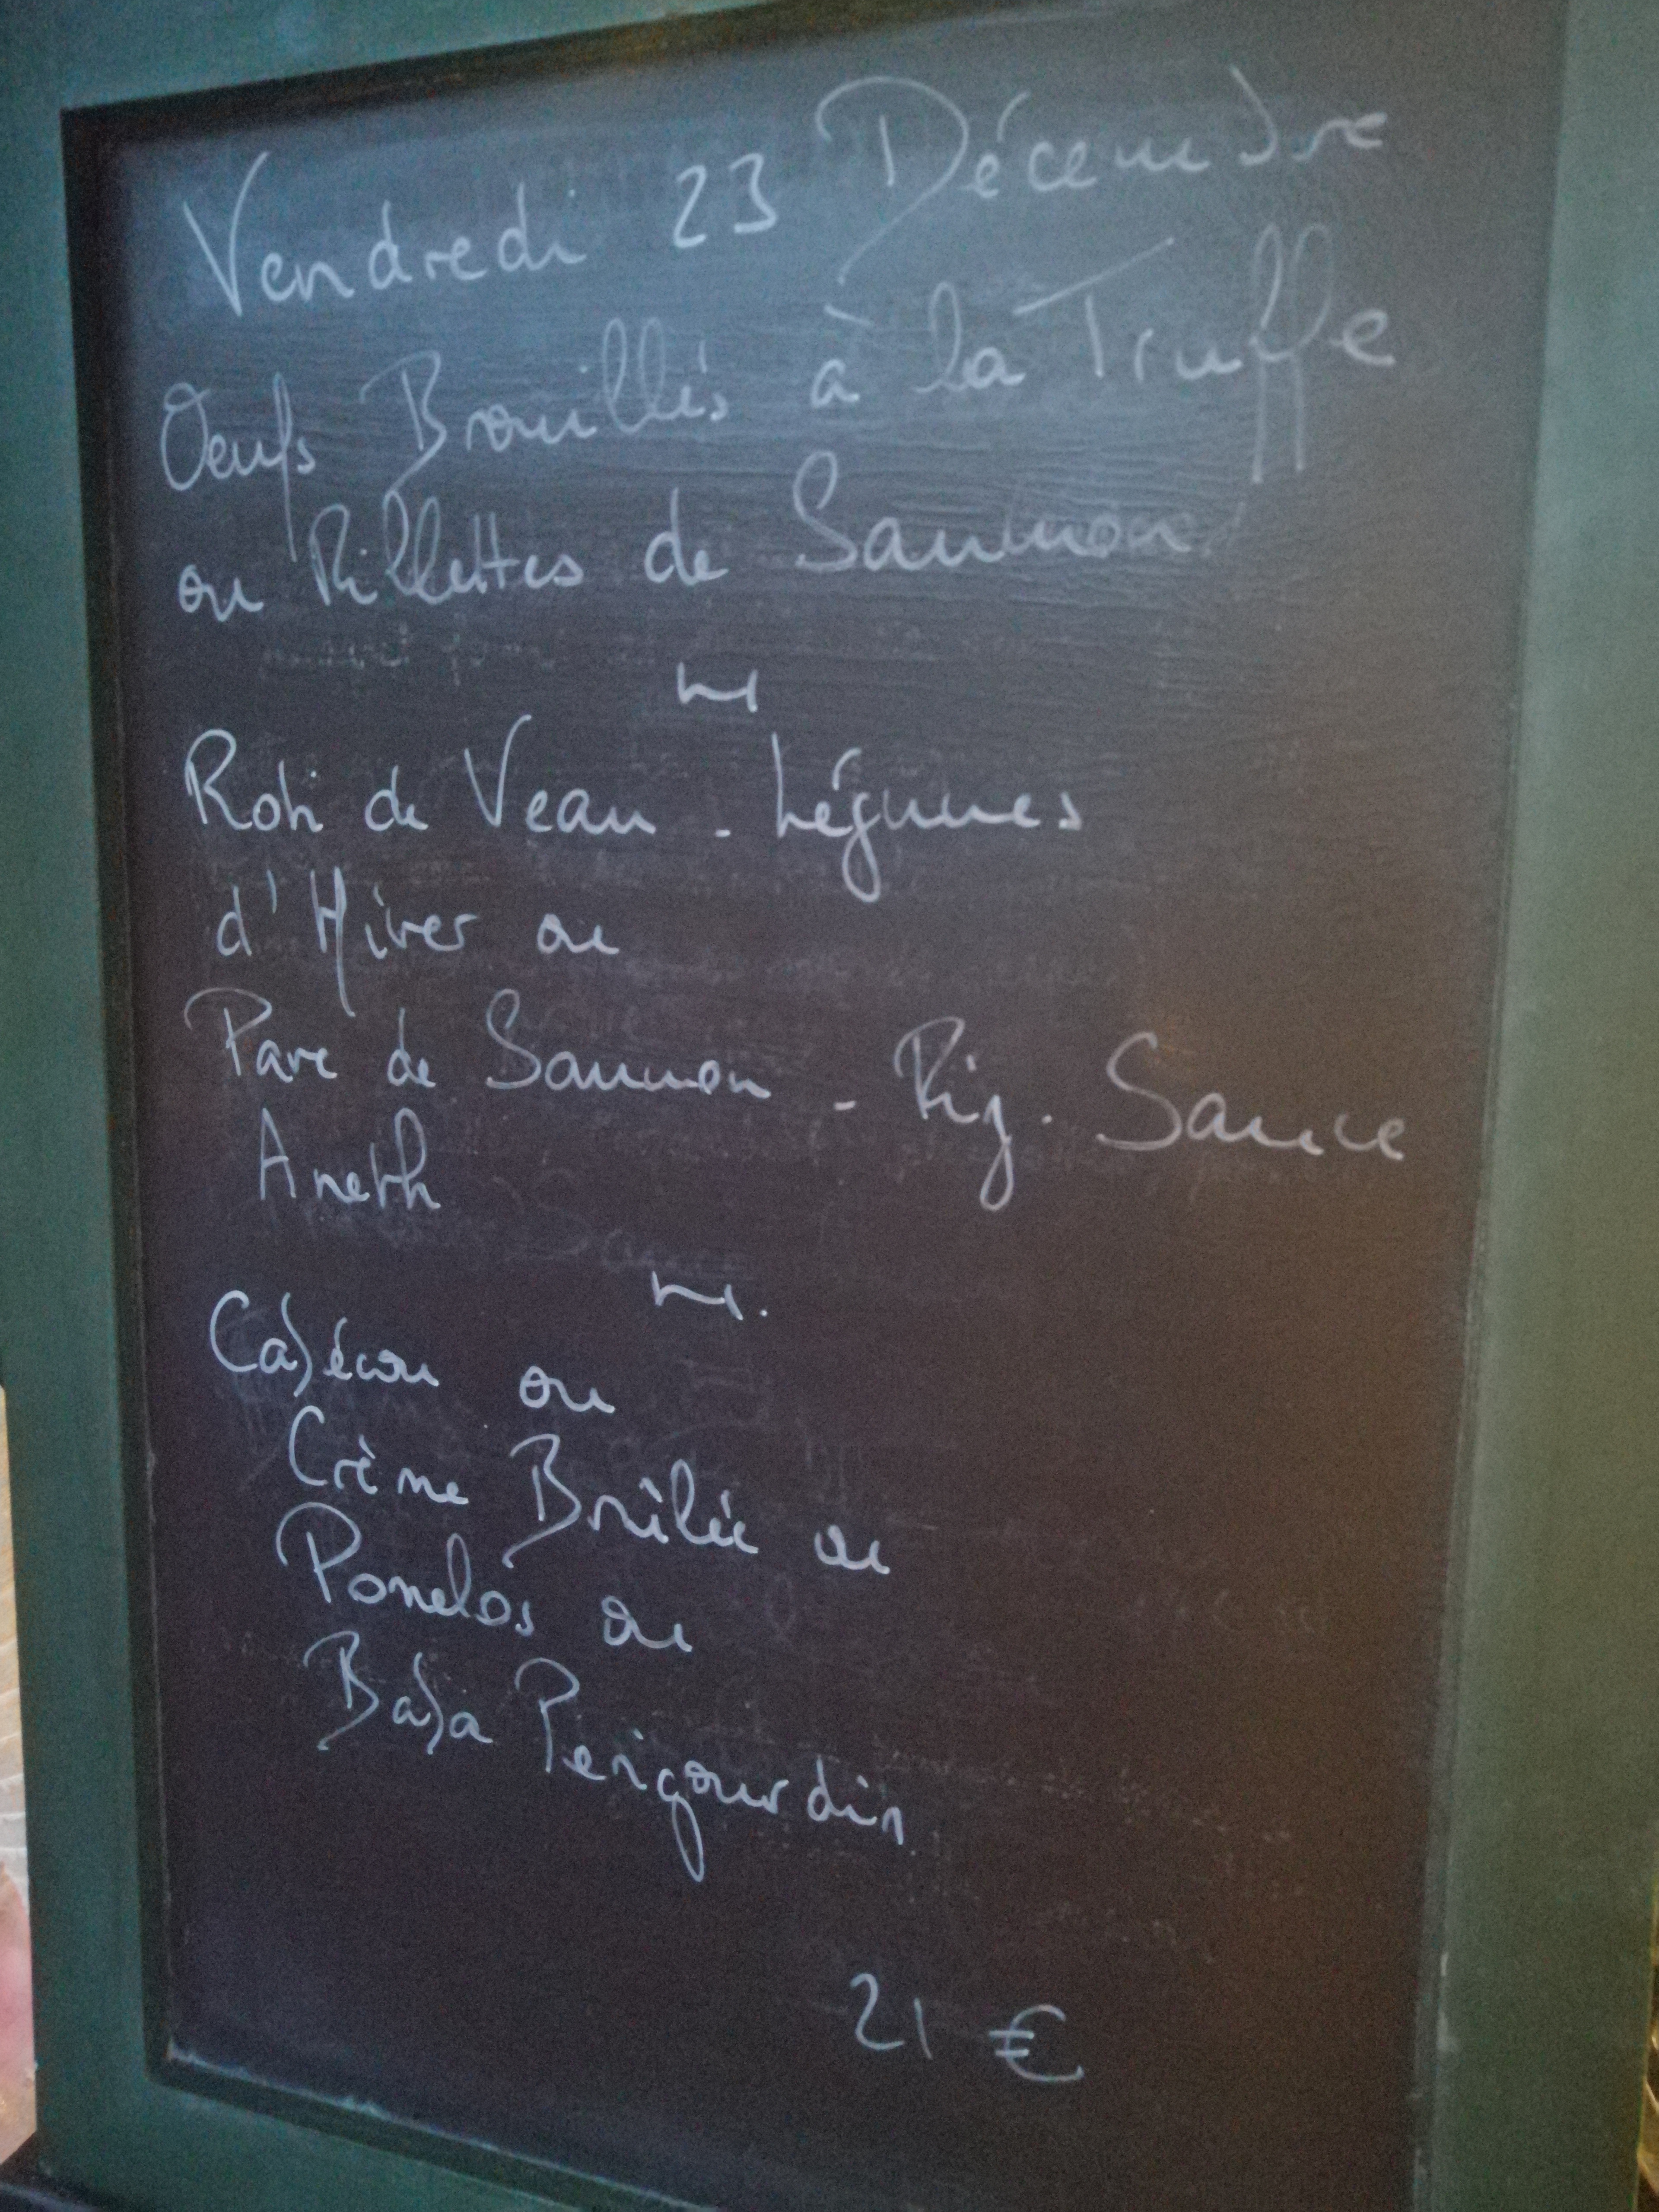 Vendredi 23 Décembre
Oeufs Brouillés à la Truffe
ou Rillettes de Saumon
Roti de Veau - Légumes
d'Hiver ou
Pavé de Saumon - Riz. Sauce
Aneth
Cabécou ou
Crème Brûlée ou
Pomelos ou
Baba Perigourdin
21 €